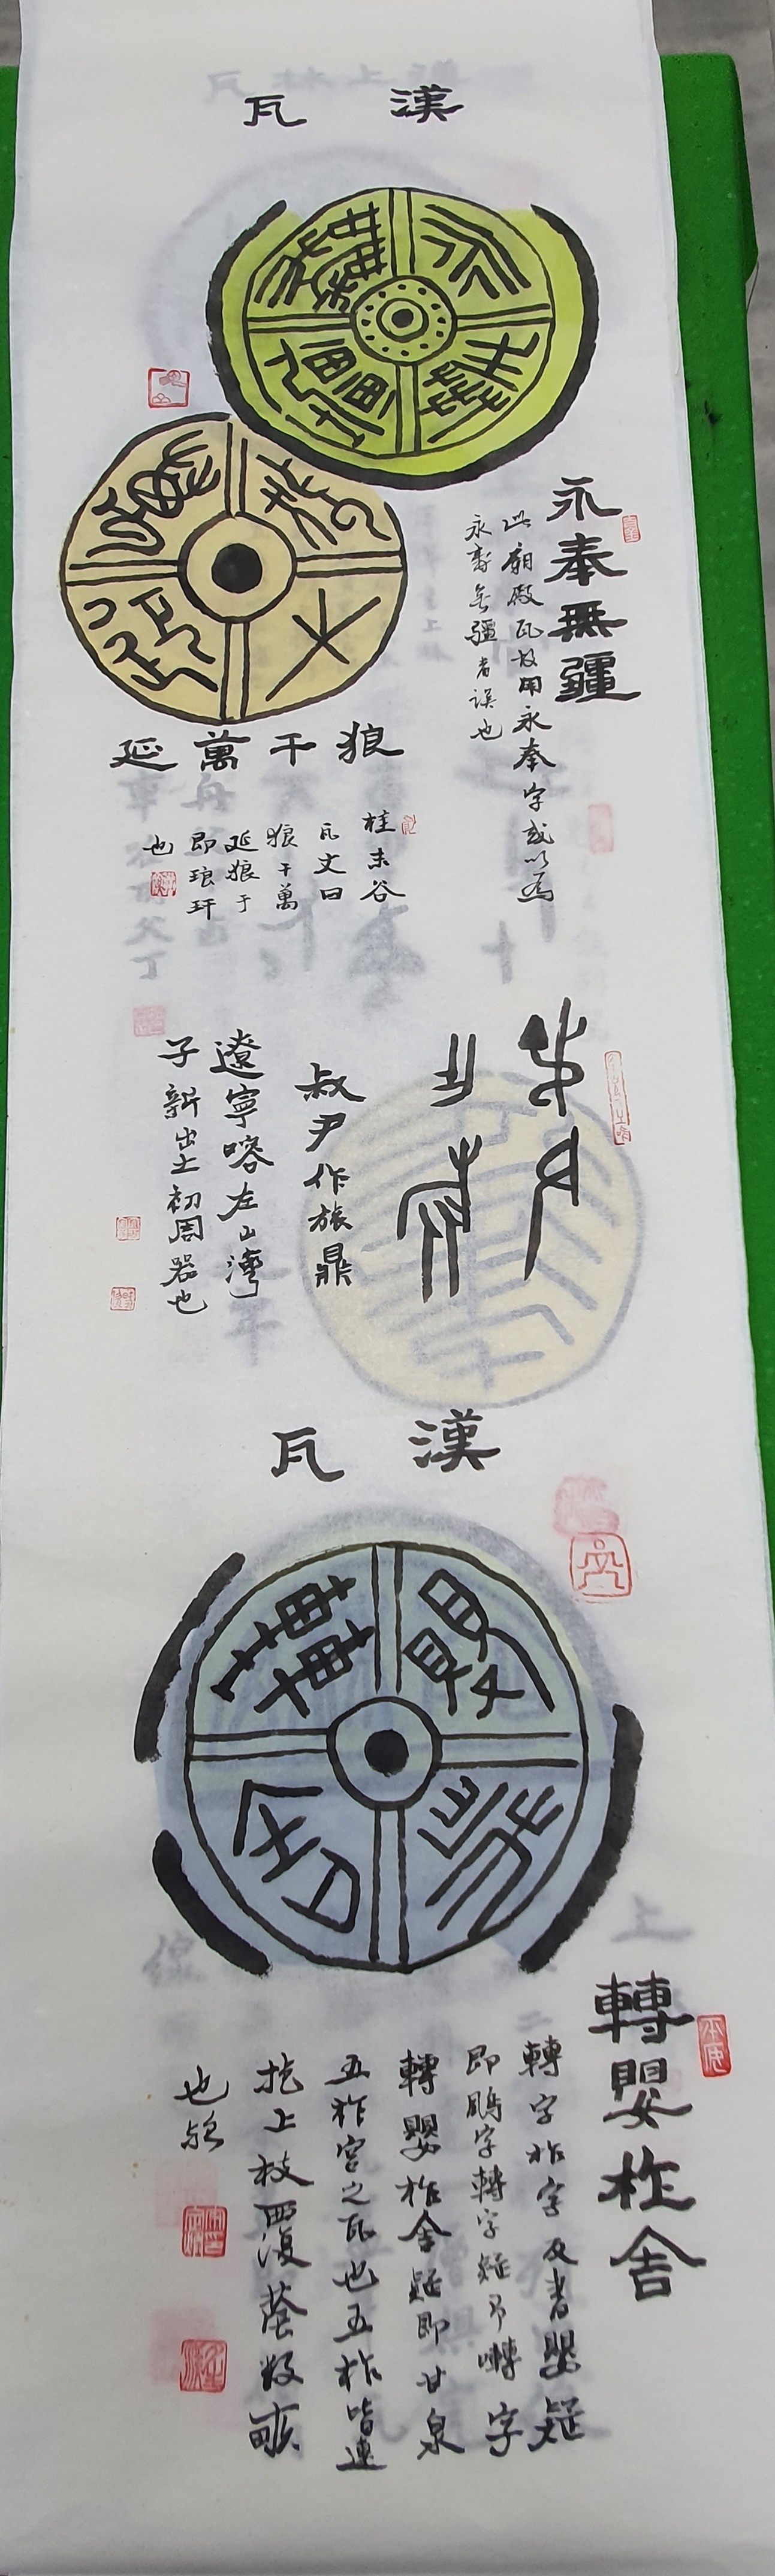 漢瓦
永奉無疆
此廟殿瓦故用永奉字或以為
永壽無疆者誤也
狼干萬延
桂未谷
瓦文曰
狼干萬
延狼于
即琅玕
也
叔尹作旅鼎
遼寧喀左山灣
子新出土初周器也
漢瓦
轉嬰柞舍
轉字柞字反書嬰疑
即鷃字轉字疑即囀字
轉嬰柞舍疑即甘泉
五柞宮之瓦也五柞皆連
抱上枝覆蔭數畝
也